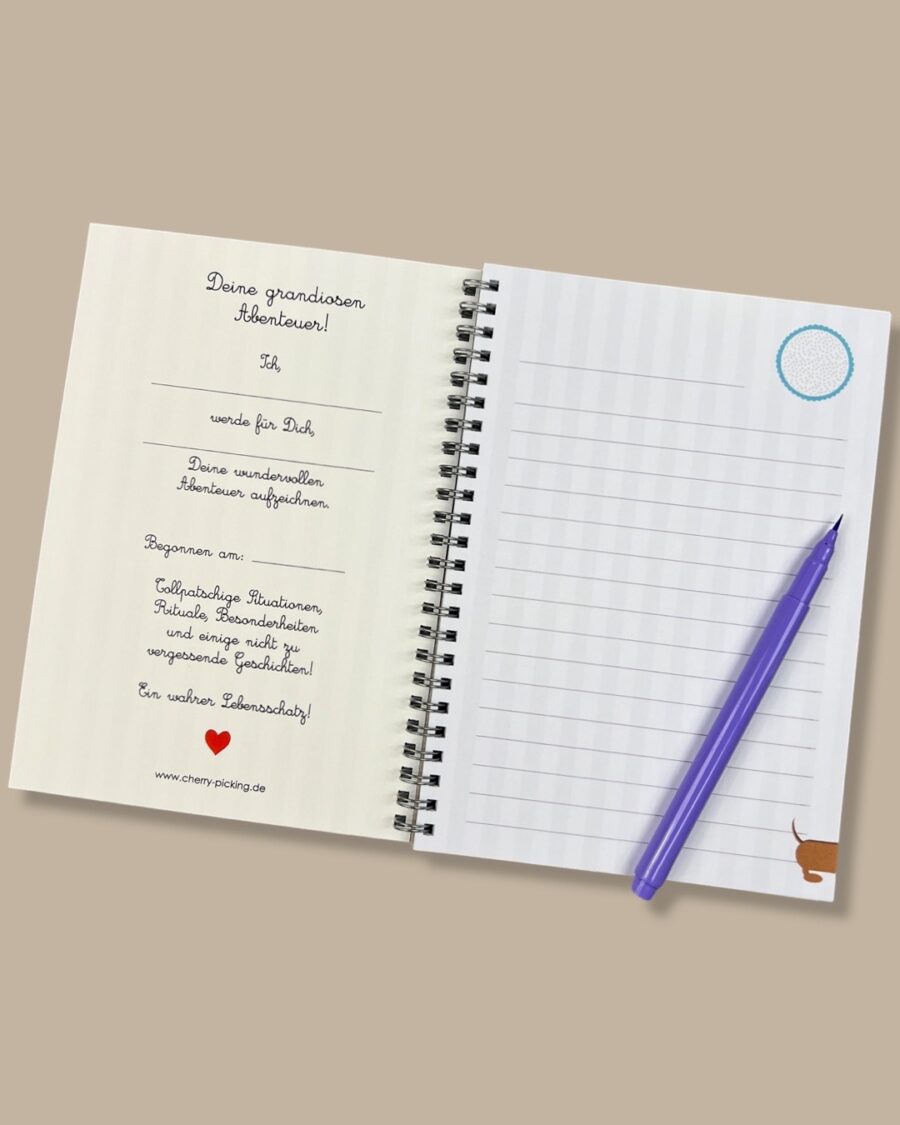 Deine grandiosen
Abenteuer!
Ich,
werde für Dich,
Deine wundervollen
Abenteuer aufzeichnen.
Begonnen am:
Tollpatschige Situationen,
Rituale, Besonderheiten
und einige nicht zu
vergessende Geschichten!
Ein wahrer Lebensschatz!
www.cherry-picking.de